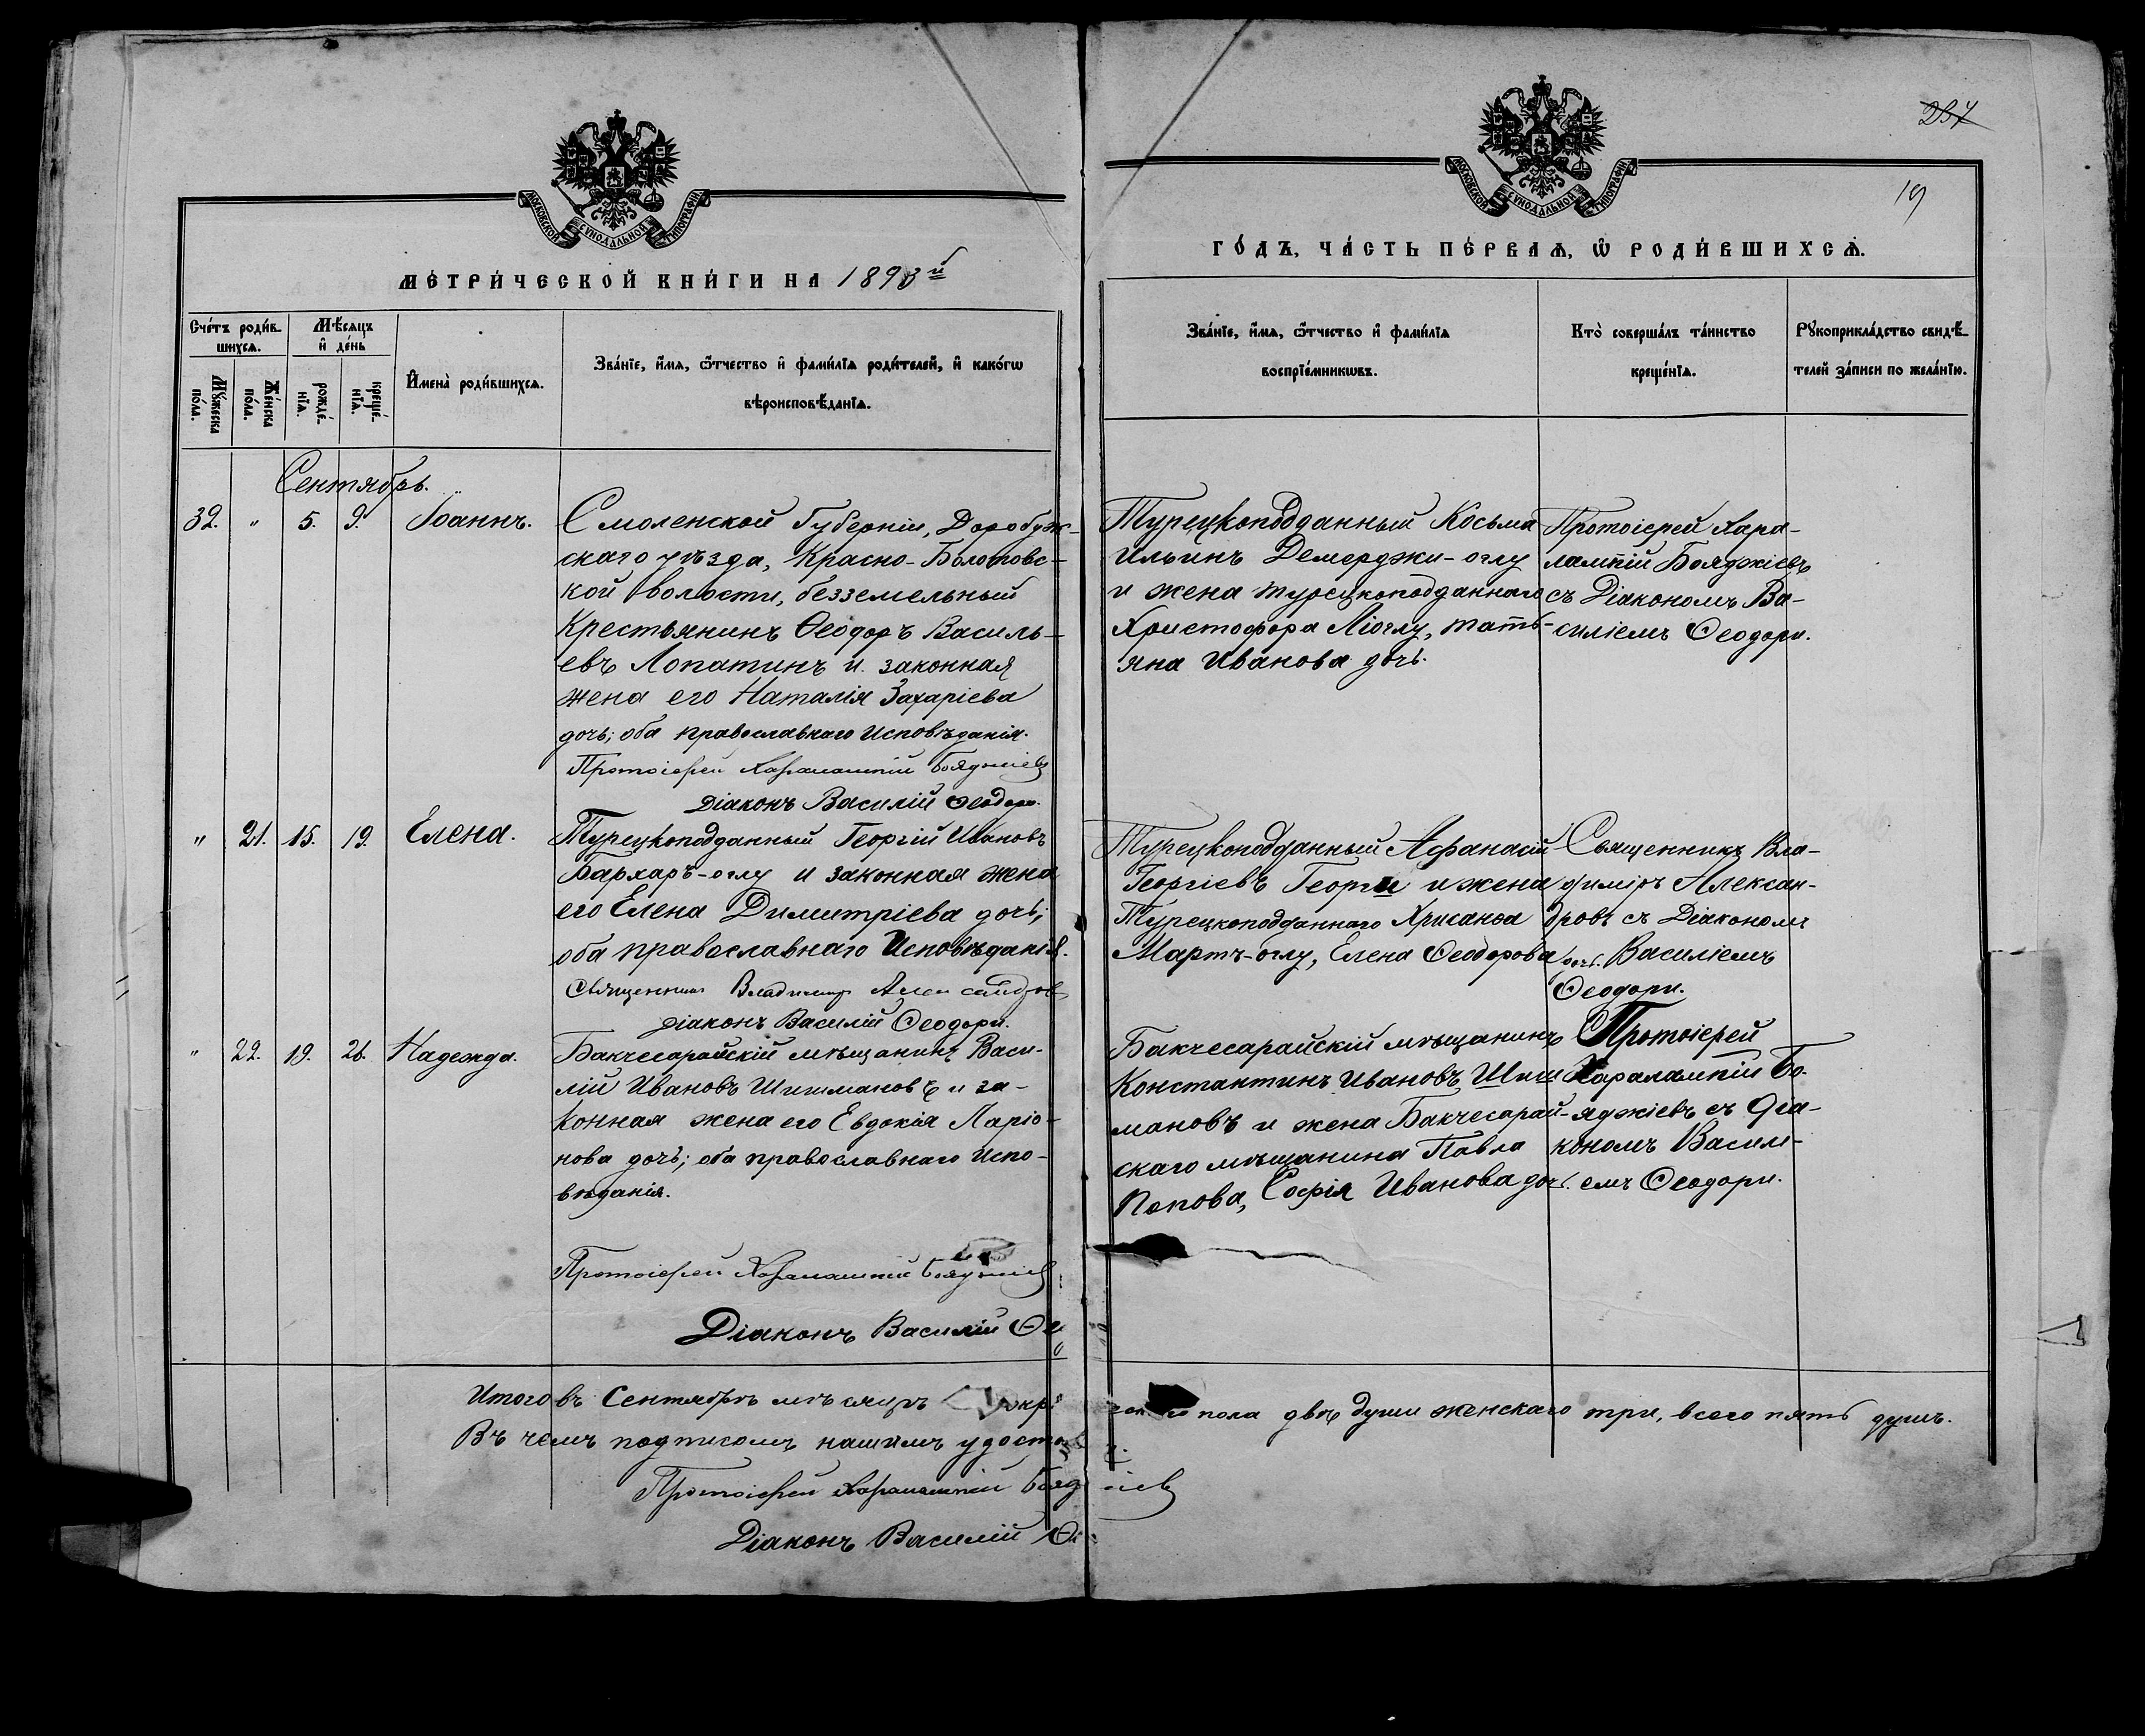 МОСКОВСКОЙ СУНОДАЛЬНОЙ ТИПОГРАФІИ
МЕТРИ́ЧЕСКОЙ КНИ́ГИ НА 1893й
Сче́тъ роди́в-
шихсѧ.
Мѣ́сѧцъ
и҆ де́нь
Мꙋ́жеска
по́ла.
Же́нска
по́ла.
рожде́-
нїѧ.
креще́-
нїѧ.
И҆мена̀ роди́вшихсѧ.
Зва́нїе, и҆́мѧ, ѻ҆́тчество и҆ фами́лїѧ роди́телей, и҆ како́гѡ
вѣроисповѣ́данїѧ.
Сентябрь.
32. " 5. 9. Іоаннъ.
Смоленской Губерніи, Доробуж-
скаго уѣзда, Красно-Болотовс-
кой волости, безземельный
Крестьянинъ Ѳеодоръ Василь-
евъ Лопатинъ и законная
жена его Наталія Захаріева
дочь; оба православнаго Исповѣданія.
Протоіерей Харалампій Бояджіевъ
Діаконъ Василій Ѳеодори.
" 21. 15. 19. Елена.
Турецкоподданный Георгій Ивановъ
Бархаръ-оглу и законная жена
его Елена Димитріева дочь;
оба православнаго Исповѣданія.
Священникъ Владимир Александров
Діаконъ Василій Ѳеодори.
" 22. 19. 26. Надежда.
Бакчесарайскій мѣщанинъ Васи-
лій Ивановъ Шишмановъ и за-
конная жена его Евдокія Ларіо-
нова дочь; оба православнаго Испо-
вѣданія.
Протоіерей Харалампій Бояджіев
Діаконъ Василій Ѳе
Итого въ Сентябрѣ мѣсяцѣ окр
Въ чемъ подписомъ нашимъ удосто
Протоіерей Харалампій Бояд
Діаконъ Василій Ѳе
237
19
МОСКОВСКОЙ СУНОДАЛЬНОЙ ТИПОГРАФІИ
ГО́ДЪ, ЧА́СТЬ ПЕ́РВАѦ, Ѡ҆ РОДИ́ВШИХСѦ.
Зва́нїе, и҆́мѧ, ѻ҆́тчество и҆ фами́лїѧ
воспрїе́мникѡвъ.
Кто̀ соверша́лъ та́инство
креще́нїѧ.
Рꙋкоприкла́дство свидѣ́-
телей за́писи по жела́нїю.
Турецкоподданный Косьма
Ильинъ Демерджи-оглу
и жена турецкоподданнаго
Христофора Ліоглу, тать-
яна Иванова дочь.
Протоіерей Хара-
лампій Бояджіевъ
съ Діакономъ Ва-
силіемъ Ѳеодори.
Турецкоподданный Афанасій
Георгіевъ Георги и жена
Турецкоподданнаго Хрисанѳа
Мартъ-оглу, Елена Ѳеодорова доч.
Священникъ Вла-
димiръ Алексан-
дровъ съ Діакономъ
Василіемъ
Ѳеодори.
Бакчесарайскій мѣщанинъ
Константинъ Ивановъ Шиш
мановъ и жена Бакчесарай-
скаго мѣщанина Павла
Попова, Софія Иванова доч.
Протоіерей
Харалампій Бо-
яджіевъ съ Діа-
кономъ Васили-
емъ Ѳеодори.
пола двѣ души женскаго три, всего пять душъ.
іев